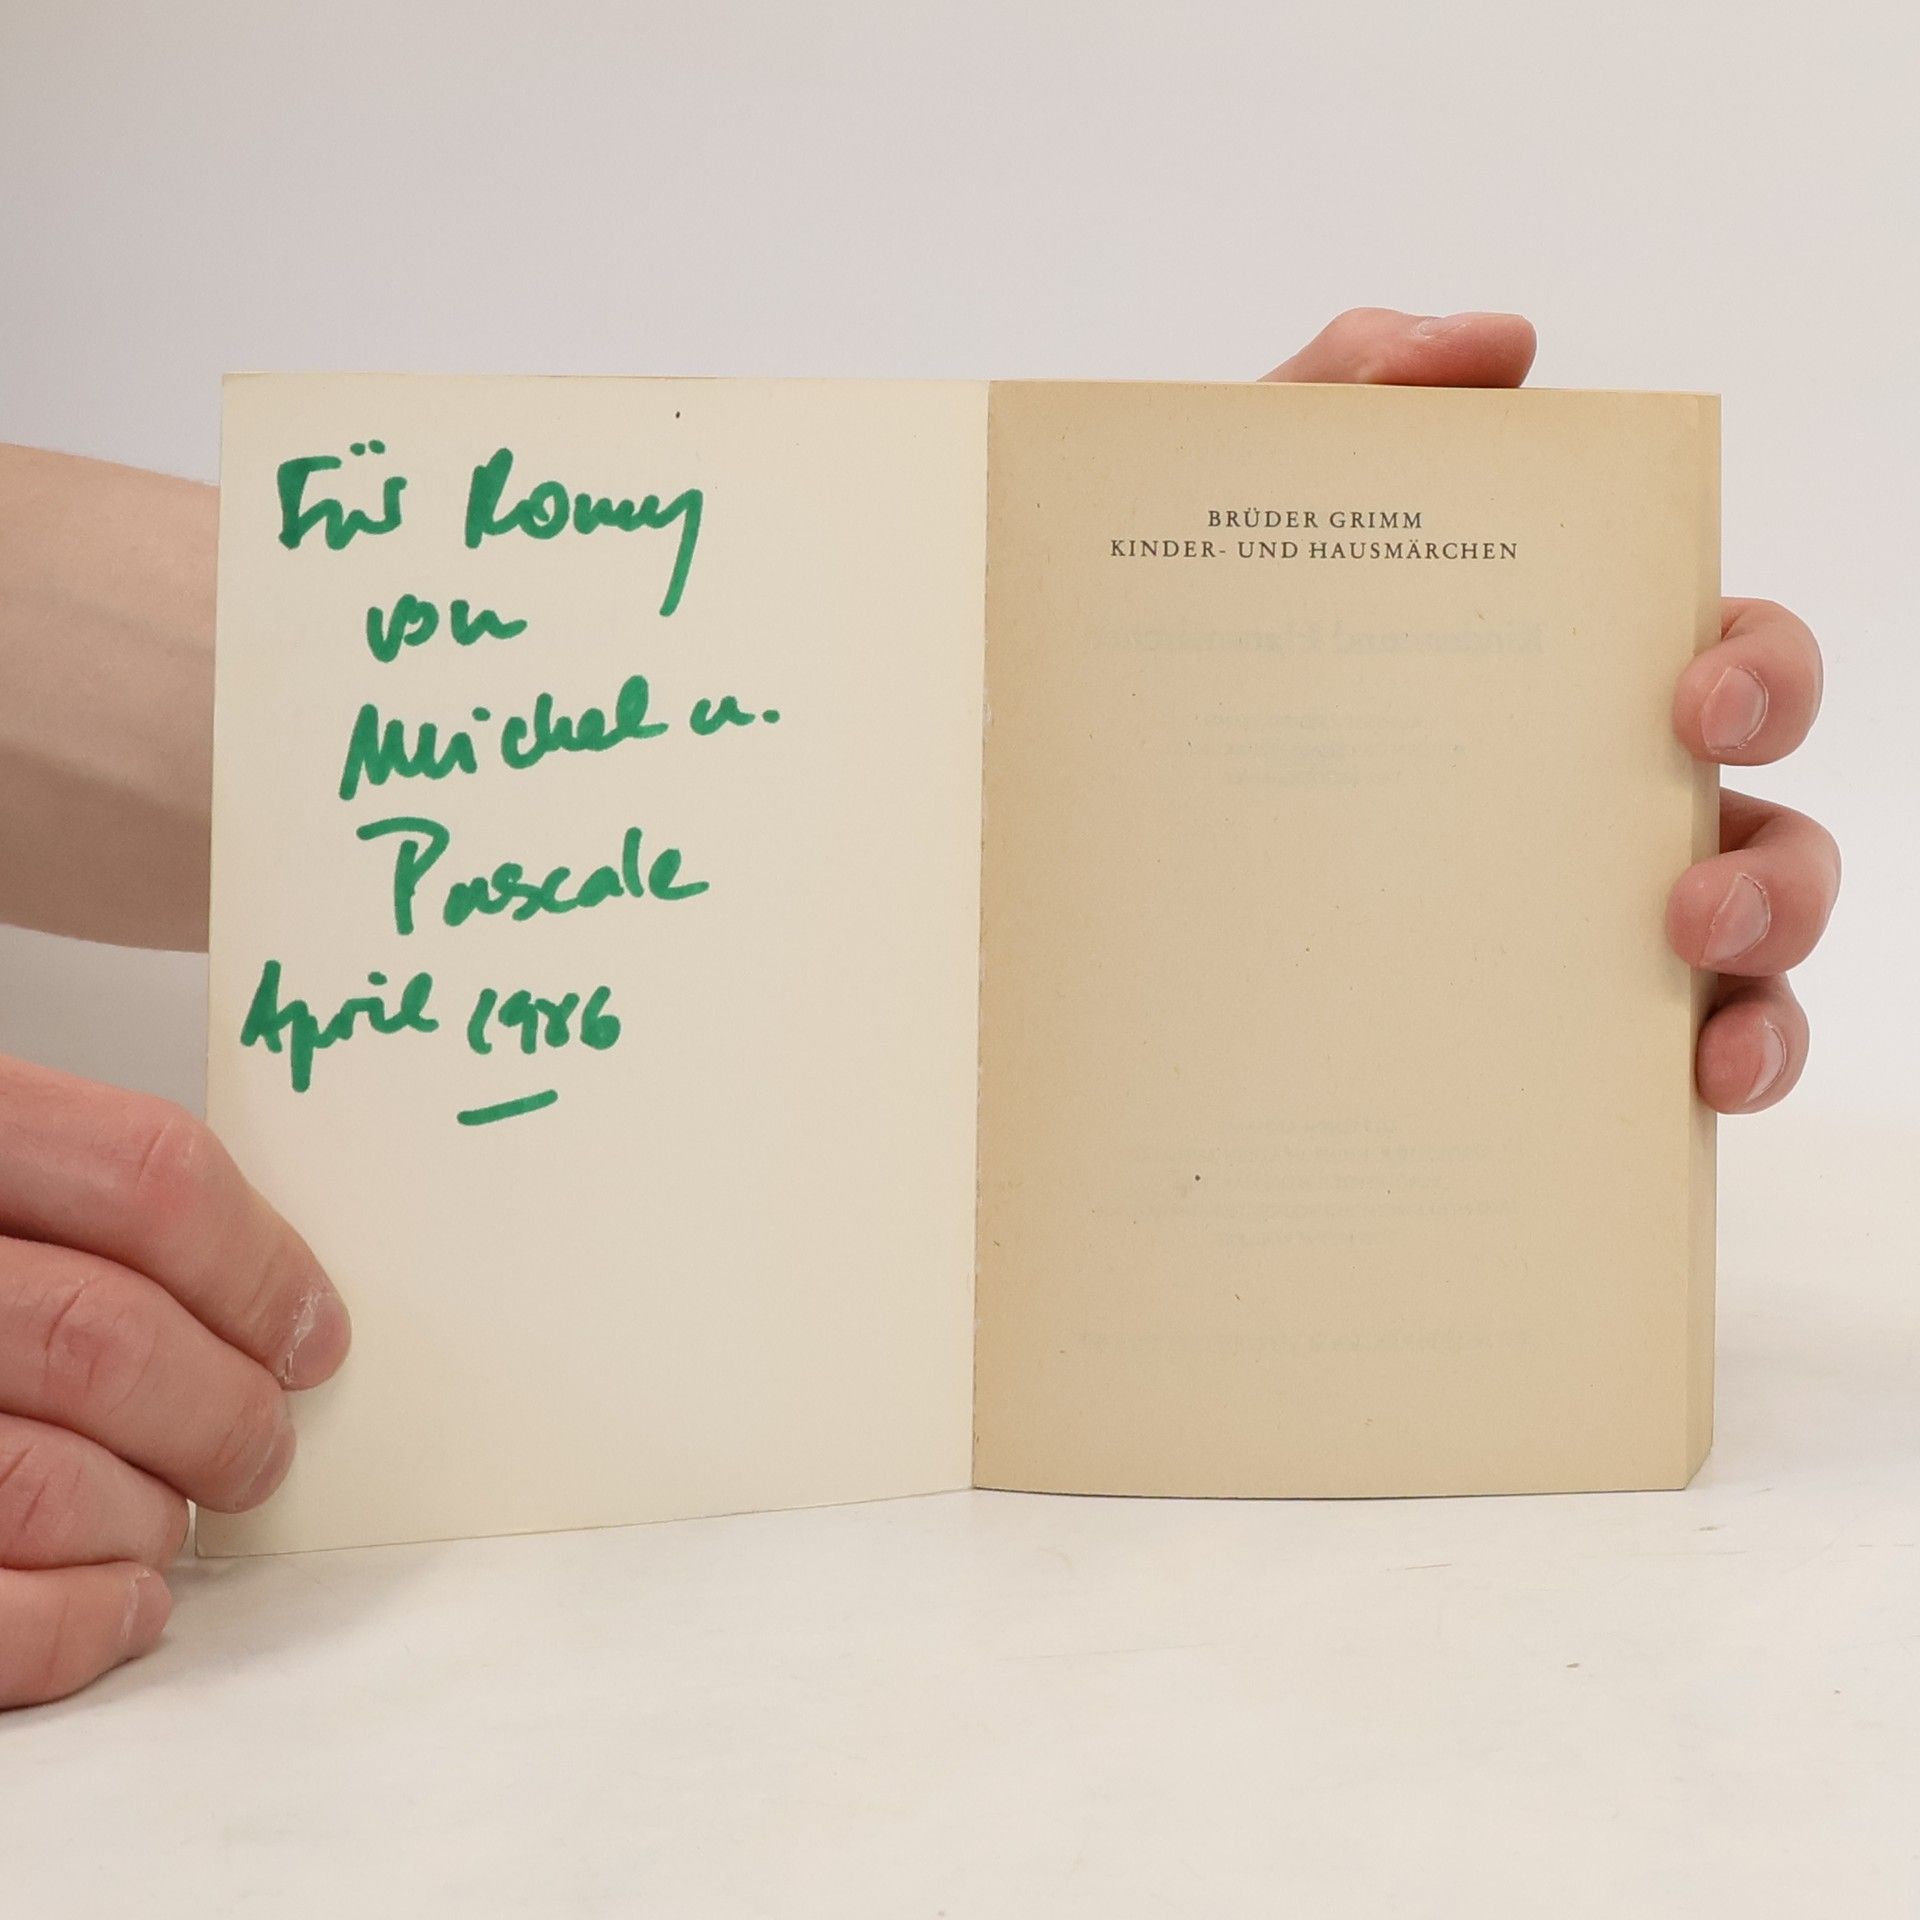 Für Romy
von
Michel u.
Pascale
April 1986
BRÜDER GRIMM
KINDER- UND HAUSMÄRCHEN